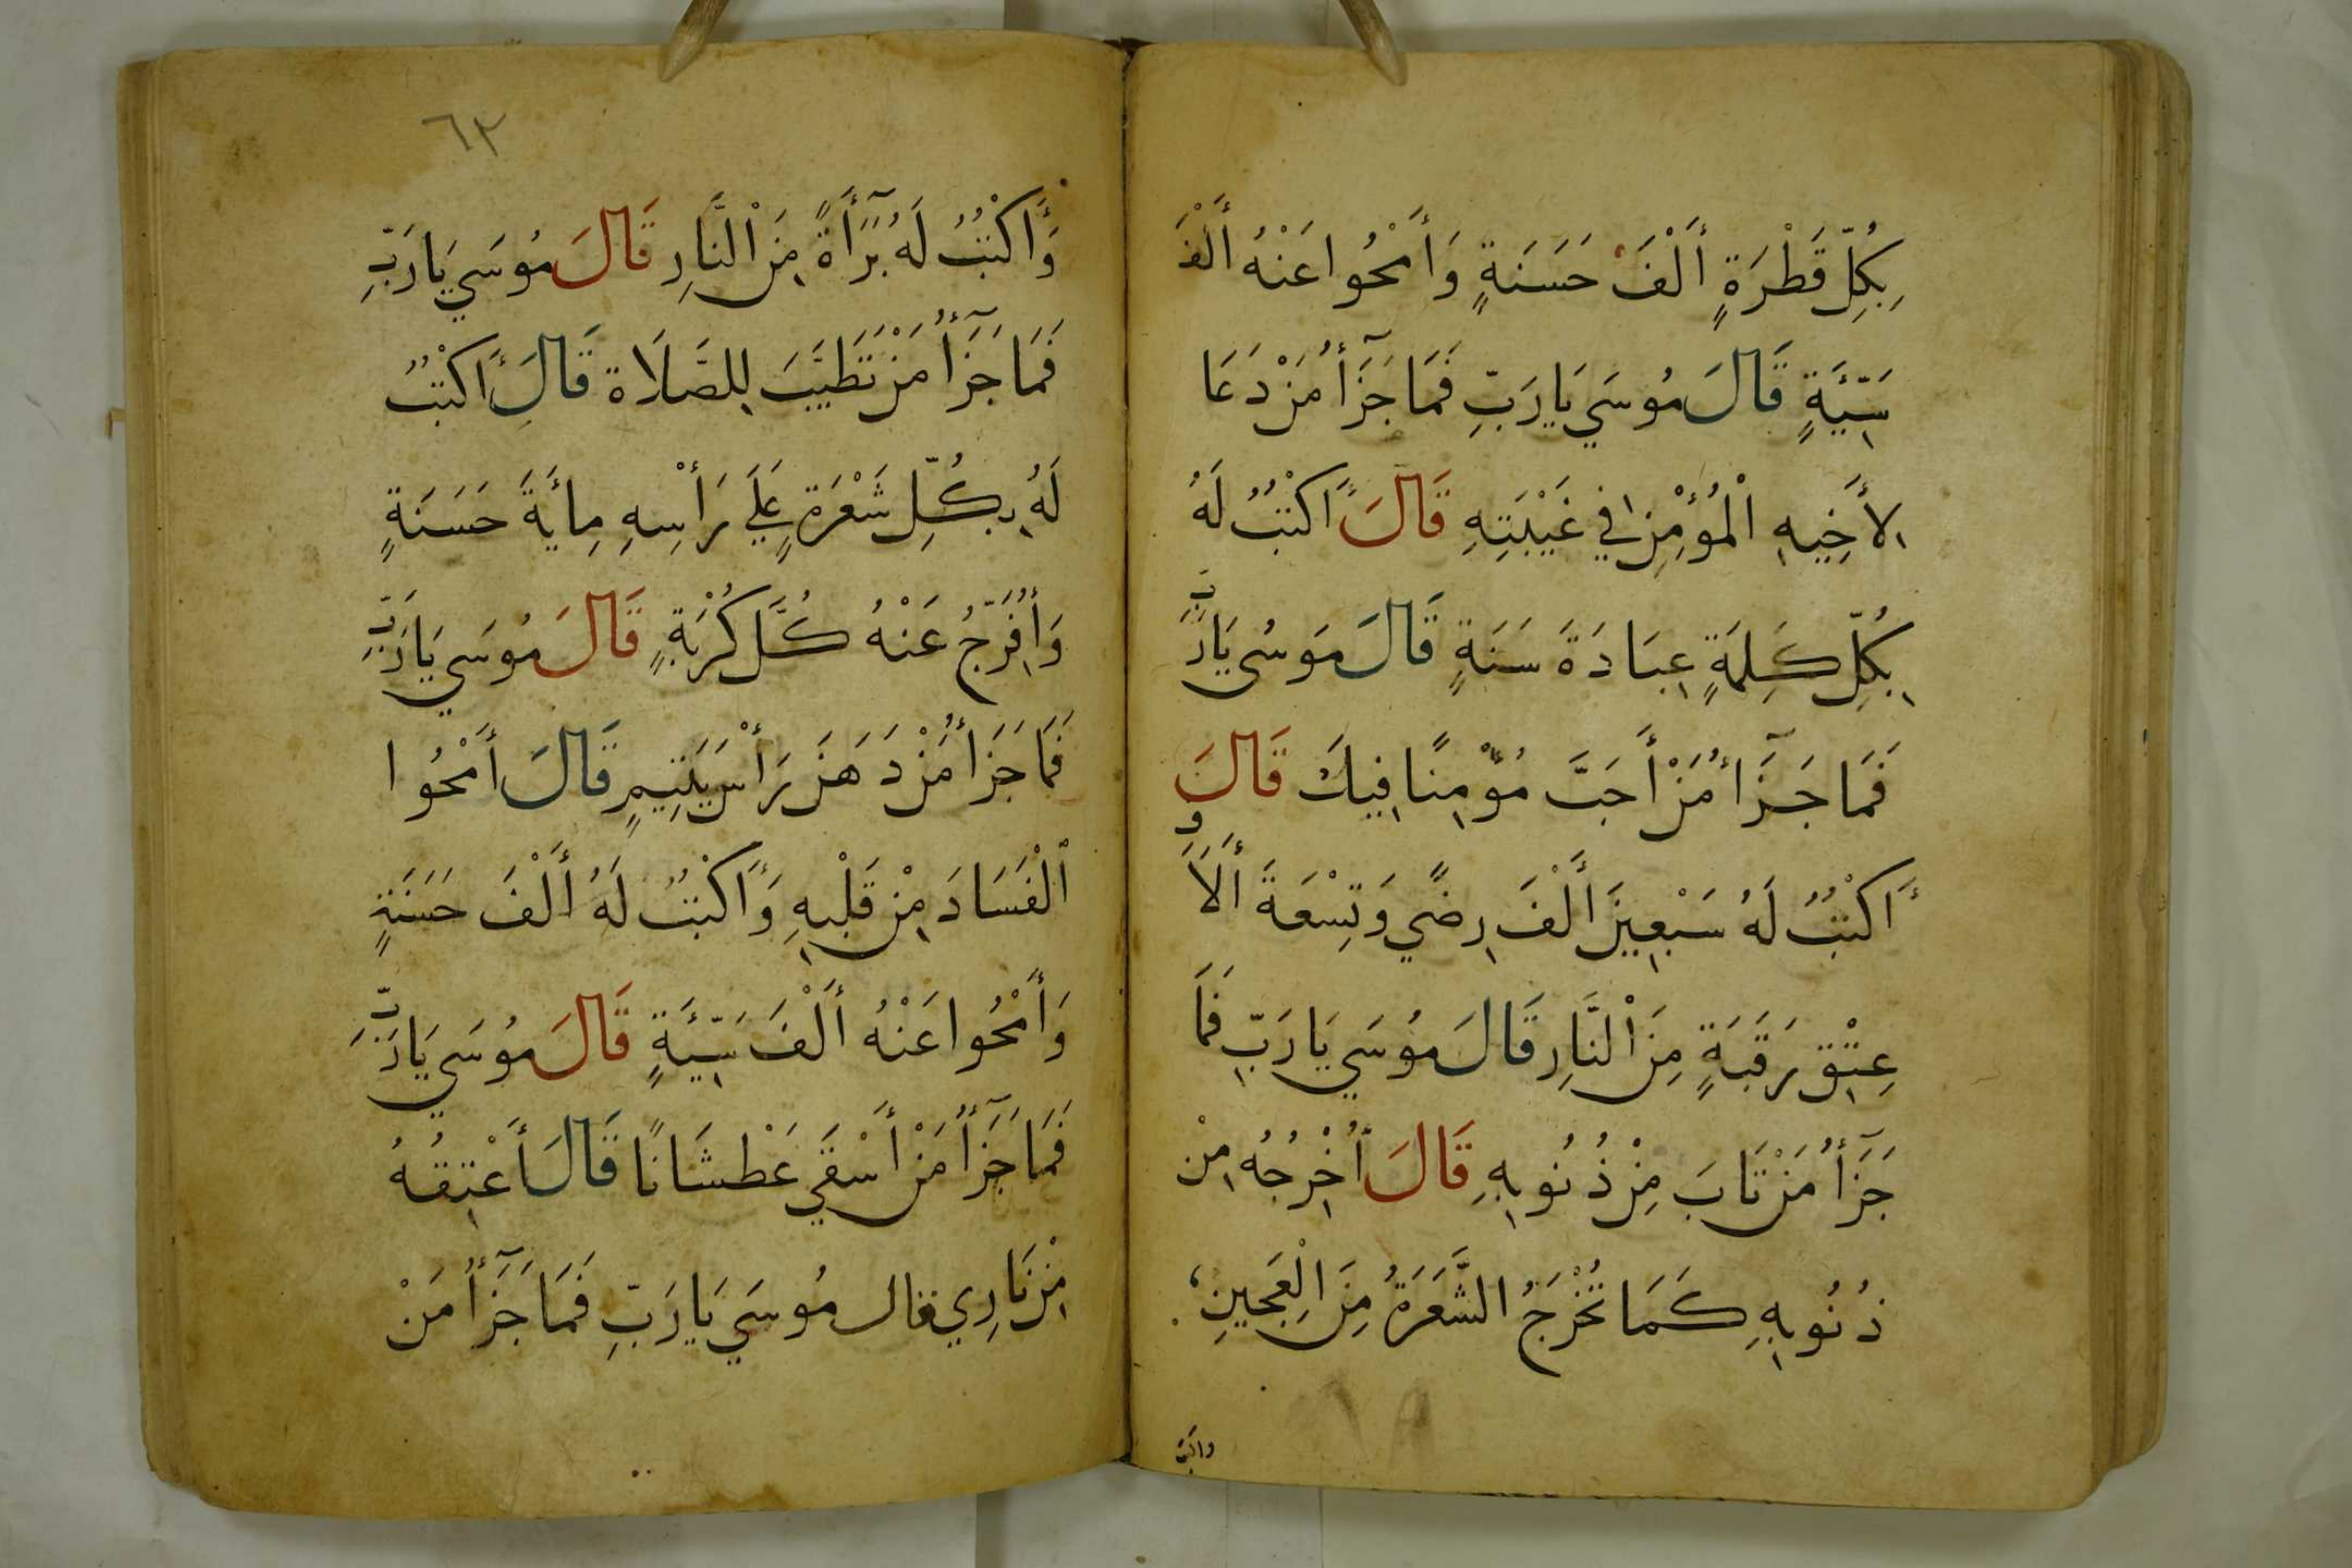 بِكُلِّ قَطْرَةٍ أَلْفَ حَسَنَةٍ وَأَمْحُوا عَنْهُ أَلْفَ
سَيِّئَةٍ قَالَ مُوسَي يَا رَبِّ فَمَا جَزَآأُ مَنْ دَعَا
لِأَخِيهِ الْمُؤْمِنِ فِي غَيْبَتِهِ قَالَ أَكْتُبُ لَهُ
بِكُلِّ كَلِمَةٍ عِبَادَةَ سَنَةٍ قَالَ مُوسَى يَا رَبِّ
فَمَا جَزَآأُ مَنْ أَحَبَّ مُؤْمِنًا فِيكَ قَالَ
أَكْتُبُ لَهُ سَبْعِينَ أَلْفَ رِضًي وَتِسْعَةَ أَلَافِ
عِتْقِ رَقَبَةٍ مِنَ النَّارِ قَالَ مُوسَي يَا رَبِّ فَمَا
جَزَآأُ مَنْ تَابَ مِنْ ذُنُوبِهِ قَالَ أُخْرِجُهُ مِنْ
ذُنُوبِهِ كَمَا تُخْرَجُ الشَّعَرَةُ مِنَ الْعَجِينِ
واكتب
٦٣
وَأَكْتُبُ لَهُ بَرَآأَةً مِنَ النَّارِ قَالَ مُوسَي يَا رَبِّ
فَمَا جَزَآأُ مَنْ تَطَيَّبَ لِلصَّلَاةِ قَالَ أَكْتُبُ
لَهُ بِكُلِّ شَعْرَةٍ عَلَي رَأْسِهِ مِايَةَ حَسَنَةٍ
وَأُفَرِّجُ عَنْهُ كُلَّ كُرْبَةٍ قَالَ مُوسَي يَا رَبِّ
فَمَا جَزَأُ مَنْ دَهَنَ رَأْسَ يَتِيمٍ قَالَ أَمْحُوا
الْفَسَادَ مِنْ قَلْبِهِ وَأَكْتُبُ لَهُ أَلْفَ حَسَنَةٍ
وَأَمْحُوا عَنْهُ أَلْفَ سَيِّئَةٍ قَالَ مُوسَي يَا رَبِّ
فَمَا جَزَآأُ مَنْ أَسْقَي عَطْشَانًا قَالَ أَعْتِقُهُ
مِنْ نَارِي قال مُوسَي يَا رَبِّ فَمَا جَزَآأُ مَنْ